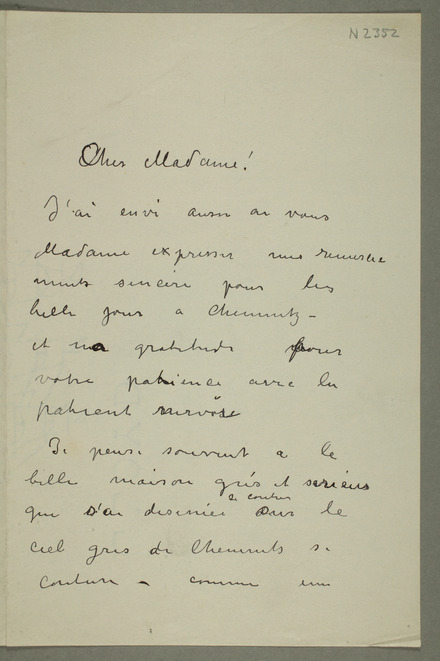 N2352
Cher Madame!
J'ai envi aussi a vous
Madame expresser mes remercie
ments sincire pour les
belle jour a Chemnitz –
et ma gratitude pour
votre patience avec le
patient nervöse
Je pense souvent a le
belle maison gris et serieus
que s'ai desinée sur le
ciel gris de Chemnits
conture – comme